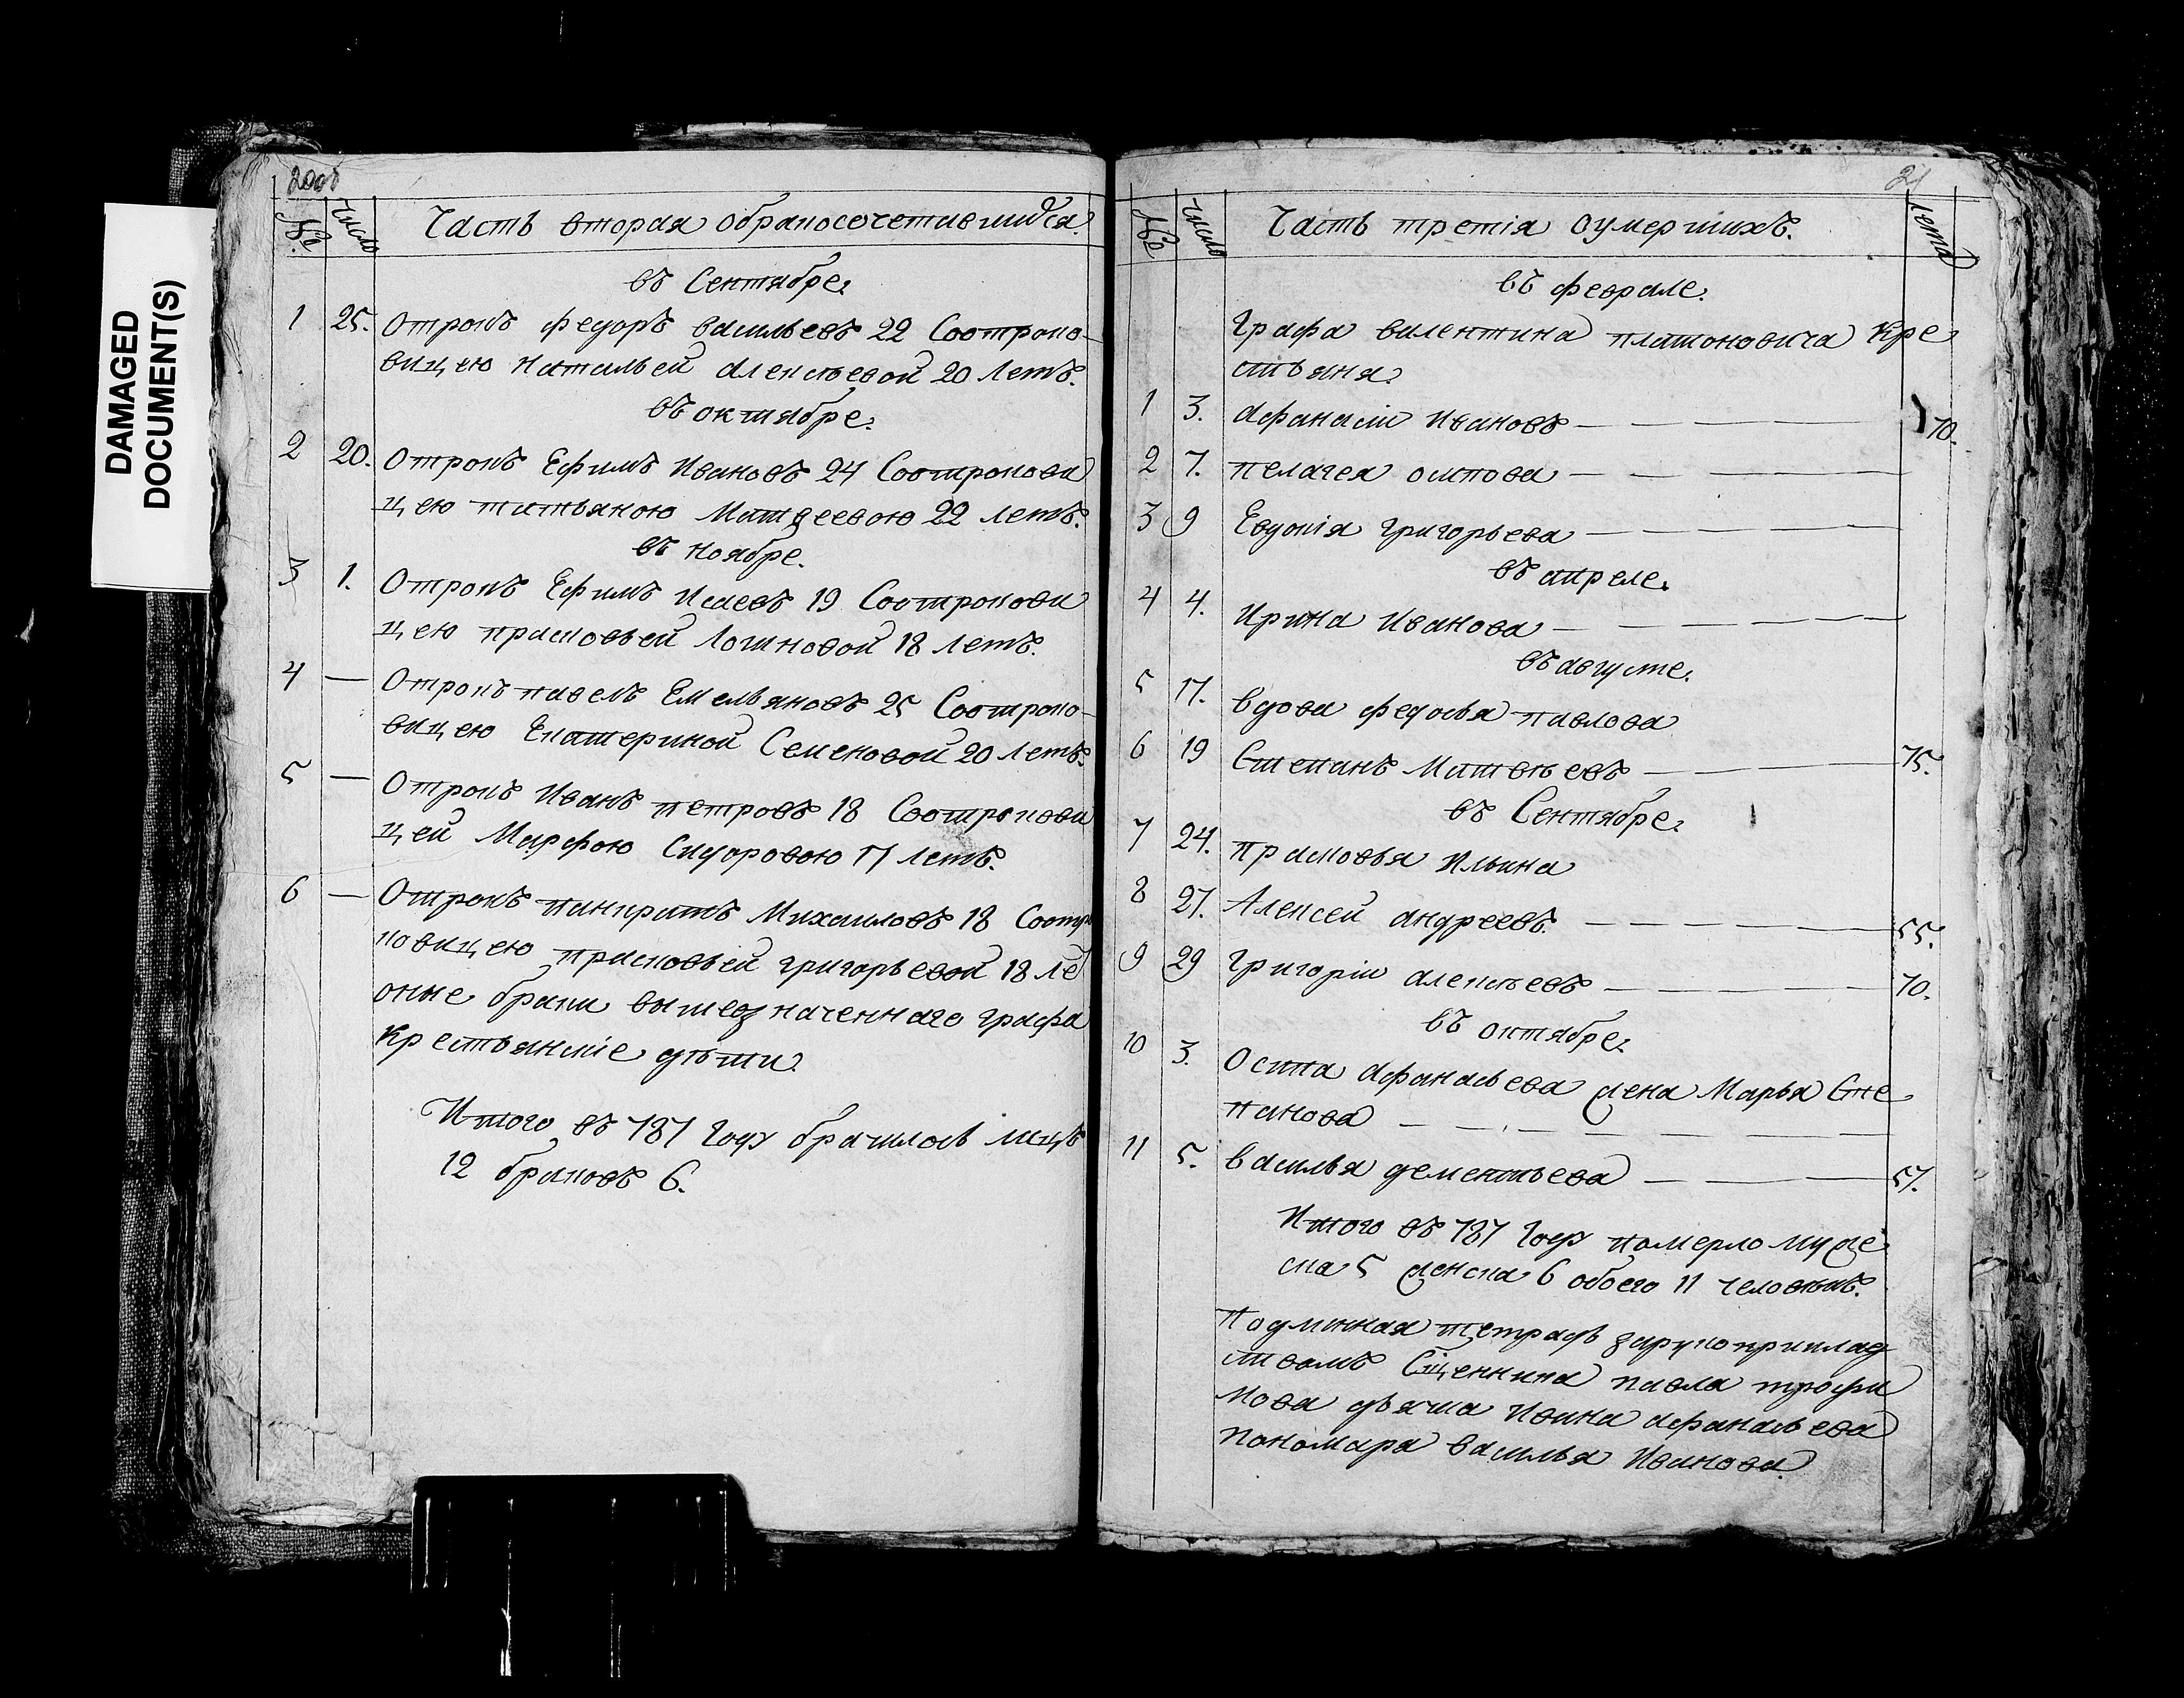 DAMAGED
DOCUMENT(S)
20об
№ число Часть вторая обраносочетавшихся.
въ Сентябре.
1 25. Отрокъ федоръ васильевъ 22 Соотроко-
вицею натальей алексѣевой 20 летъ.
въ октябре.
2 20. Отрокъ Ефимъ Ивановъ 24 Соотрокови
цею татьяною Матвеевою 22 летъ.
въ ноябре.
3 1. Отрокъ Ефимъ Исаевъ 19 Соотрокови
цею прасковьей Логиновой 18 летъ.
4 — Отрокъ павелъ Емельяновъ 25 Соотроко-
вицею Екатериной Семеновой 20 летъ.
5 — Отрокъ Иванъ петровъ 18 Соотрокови
цей Марфою Сидоровою 17 летъ.
6 — Отрокъ панкратъ Михаиловъ 18 Соотро
ковицею прасковьей григорьевой 18 ле
оные браки вышеозначеннаго графа
Крестьянскіе дѣти.
Итого въ 787 году брачилось лицъ
12 браковъ 6.
21
№ число Часть третія оумершихъ. лета
въ феврале.
Графа валентина платоновича Кре
стьяня.
1 3. афанасіи Ивановъ — — — — 70.
2 7. пелагея осипова — — — —
3 9 Евдокія григорьева — — — —
въ апреле.
4 4. Ирина Иванова — — — —
въ августе.
5 17. вдова федосья павлова
6 19 Степанъ Матвѣевъ — — — 75.
въ Сентябре.
7 24. прасковья Ильина
8 27. Алексей андреевъ. — — — — 55.
9 29 Григоріи алексѣевъ — — — — 70.
въ октябре.
10 3. Осипа афанасьева жена Марья Сте
панова — — — — —
11 5. василья дементьева — — — 57.
Итого въ 787 году померло муже
ска 5 женска 6 обоего 11 человѣкъ.
Подлинная тетрадь зарукоприклад
ствомъ Сщенника павла трофи
мова дьячка Ивана афанасьева
пономаря василья Иванова